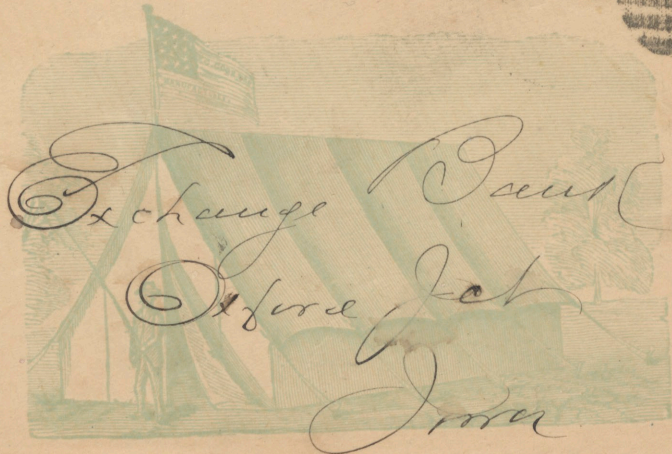 Exchange Bank
Oxford Jct
Iowa